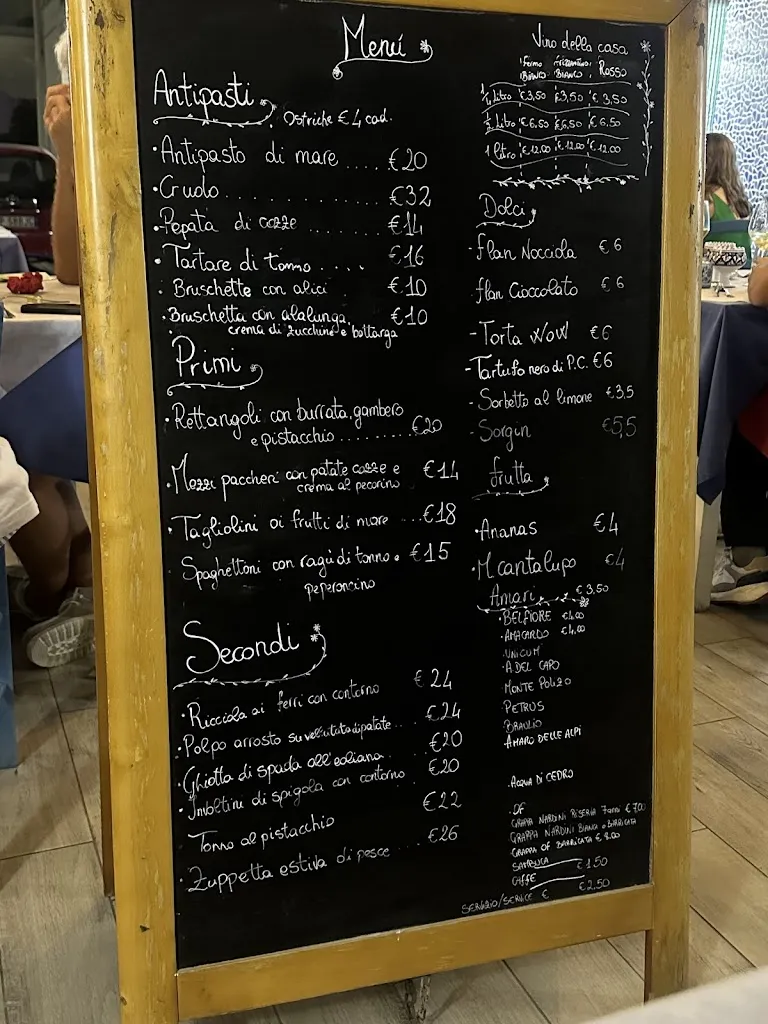 Menú
Antipasti
Ostriche €4 cad.
• Antipasto di mare .... €20
• Crudo .......... €32
• Pepata di cozze ....... €14
• Tartare di tonno .... €16
• Bruschette con alici €10
• Bruschetta con alalunga, €10
crema di zucchine e bottarga
Primi
• Rettangoli con burrata, gambero
e pistacchio ......... €20
• Mezzi paccheri con patate cozze e €14
crema al pecorino
• Tagliolini ai frutti di mare ... €18
Spaghettoni con ragù di tonno e €15
peperoncino
Secondi
• Ricciola ai ferri con contorno €24
• Polpo arrosto su vellutata di patate ... €24
• Ghiotta di spada all'eoliana €20
• Involtini di spigola con contorno €20
Tonno al pistacchio €22
• Zuppetta estiva di pesce ... €26
Vino della casa
Fermo Frizzantino Rosso
Bianco Bianco
1/4 litro €3,50 €3,50 €3,50
1/2 litro €6,50 €6,50 €6,50
1 litro €12,00 €12,00 €12,00
Dolci
- Flan Nocciola €6
Flan Cioccolato €6
- Torta WOW €6
- Tartufo nero di P.C. €6
- Sorbetto al limone €3,5
- Sorgin €5,5
frutta
• Ananas €4
• M cantalupo €4
Amari €3,50
• BELFIORE €4,00
• AMACARDO €4,00
• UNICUM
• A.DEL CAPO
MONTE POLIZO
• PETRUS
BRAULIO
AMARO DELLE ALPI
• ACQUA DI CEDRO
• OF
GRAPPA NARDINI RISERVA 7 anni € 7,00
GRAPPA NARDINI BIANCA o BARRICATA
GRAPPA OF BARRICATA € 8,00
SAMBUCA
CAFFE €1,50
SERVIZIO/SERVICE € €2,50